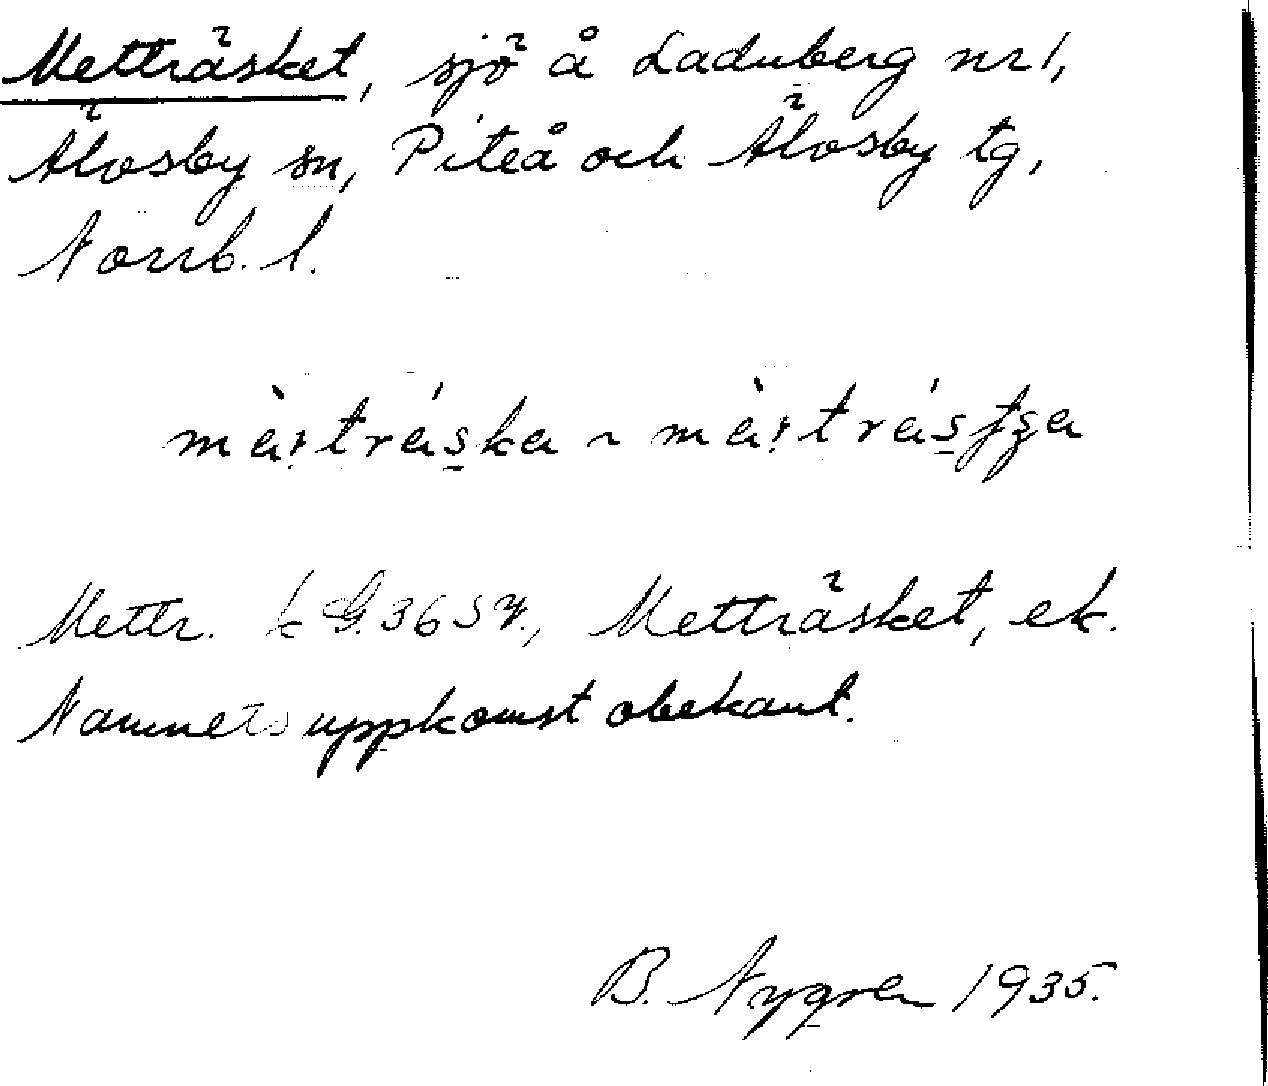 Metträsket, sjö å Laduberg nr 1,
Älvsby sn, Piteå och Älvsby tg,
Norrb. l.
Mettr. k G. 36 SV., Metträsket, ek.
Namnets uppkomst obekant.
B. Nygren 1935.